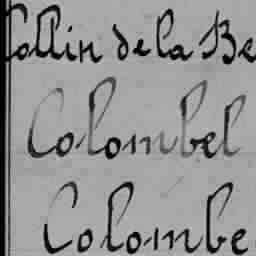 Collin de la Be
Colombel
Colombe